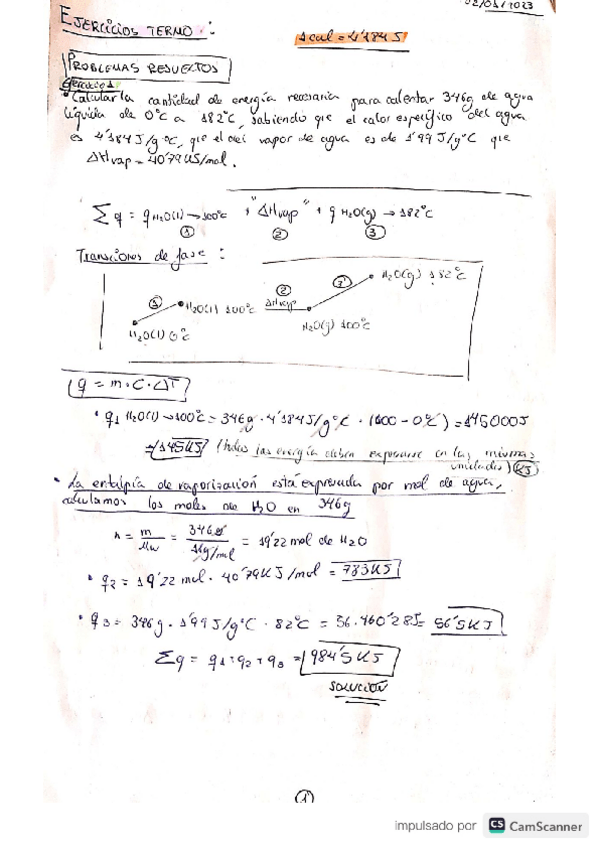 02/01/2023
EJERCICIOS TERMO :
1 cal = 4'184 J
PROBLEMAS RESUELTOS
Ejercicio 1
• Calcular la cantidad de energía necesaria para calentar 346g de agua
líquida de 0°C a 182°C, sabiendo que el calor específico del agua
es 4'184 J/g·°C, que el del vapor de agua es de 1'99 J/g°C que
ΔHvap = 40'79 KJ/mol.
Σq = q H2O(l) → 100°C + "ΔHvap" + q H2O(g) → 182°C
① ② ③
Transiciones de fase :
① H2O(l) 100°C ② ΔHvap ③ H2O(g) 182°C
H2O(l) 0°C H2O(g) 100°C
q = m · C · ΔT
• q1 H2O(l) → 100°C = 346g · 4'184 J/g°C · (100 - 0°C) = 145000J
= 145KJ (todas las energía deben expresarse en las mismas
unidades) KJ
• La entalpía de vaporización está expresada por mol de agua,
calculamos los moles de H2O en 346g
n = m/Mw = 346g / 18g/mol = 19'22 mol de H2O
• q2 = 19'22 mol · 40'79 KJ/mol = 783KJ
• q3 = 346g · 1'99 J/g°C · 82°C = 56.460'28J = 56'5KJ
Σq = q1 + q2 + q3 = 984'5 KJ
SOLUCIÓN
①
impulsado por CS CamScanner